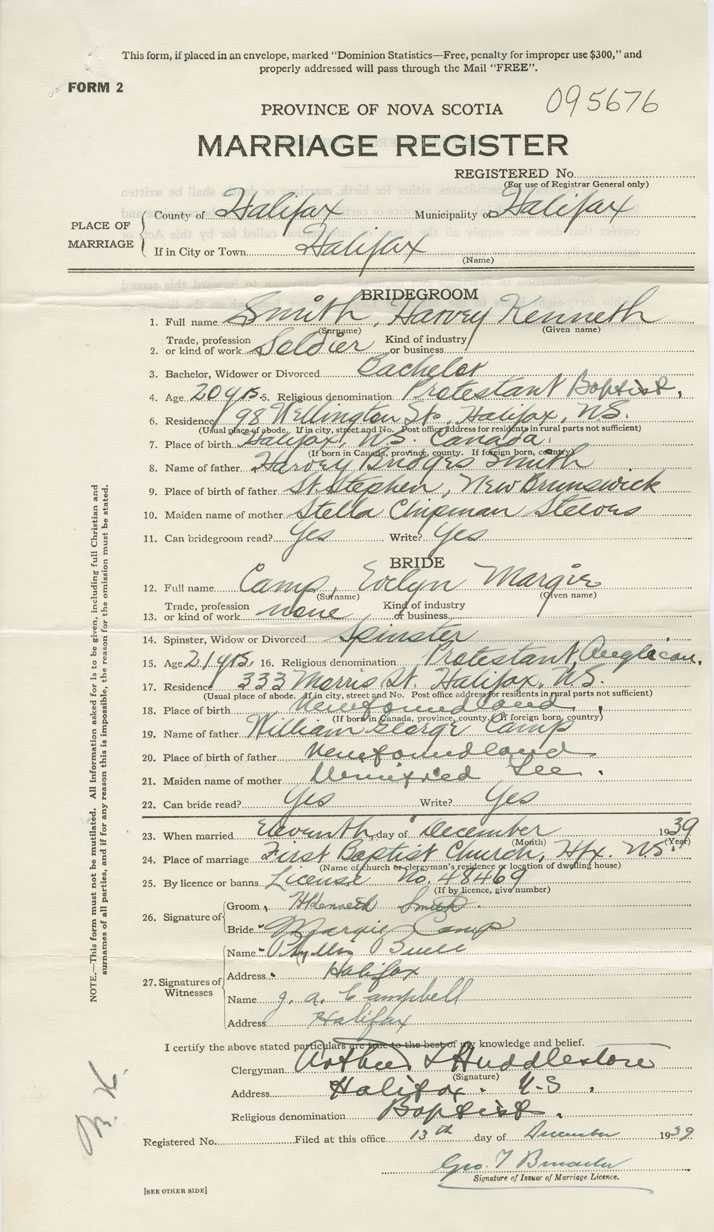 This form, if placed in an envelope, marked "Dominion Statistics—Free, penalty for improper use $300," and
properly addressed will pass through the Mail "FREE".
FORM 2
095676
PROVINCE OF NOVA SCOTIA
MARRIAGE REGISTER
REGISTERED No.
(For use of Registrar General only)
PLACE OF MARRIAGE
County of Halifax Municipality of Halifax
If in City or Town Halifax
(Name)
BRIDEGROOM
1. Full name Smith, Harvey Kenneth
(Surname) (Given name)
2. Trade, profession or kind of work Soldier Kind of industry or business
3. Bachelor, Widower or Divorced Bachelor
4. Age 20 yrs. 5. Religious denomination Protestant Baptist.
6. Residence 98 Wellington St., Halifax, N.S.
(Usual place of abode. If in city, street and No. Post office address for residents in rural parts not sufficient)
7. Place of birth Halifax, N.S. Canada.
(If born in Canada, province, county. If foreign born, country)
8. Name of father Harvey Bridges Smith
9. Place of birth of father St. Stephen, New Brunswick
10. Maiden name of mother Stella Chipman Stevens
11. Can bridegroom read? Yes Write? Yes
BRIDE
12. Full name Camp, Evelyn Margie
(Surname) (Given name)
13. Trade, profession or kind of work none Kind of industry or business
14. Spinster, Widow or Divorced Spinster
15. Age 21 yrs. 16. Religious denomination Protestant Anglican.
17. Residence 333 Morris St. Halifax, N.S.
(Usual place of abode. If in city, street and No. Post office address for residents in rural parts not sufficient)
18. Place of birth Newfoundland
(If born in Canada, province, county. If foreign born, country)
19. Name of father William George Camp
20. Place of birth of father Newfoundland
21. Maiden name of mother Winifred Lee.
22. Can bride read? Yes Write? Yes
23. When married Eleventh day of December 1939
(Month) (Year)
24. Place of marriage First Baptist Church, Hfx. N.S.
(Name of church or clergyman's residence or location of dwelling house)
25. By licence or banns License No. 48469
(If by licence, give number)
26. Signature of
Groom H Kenneth Smith
Bride Margie Camp
27. Signatures of Witnesses
Name Phyllis
Address Halifax
Name J. A. Campbell
Address Halifax
I certify the above stated particulars are true to the best of my knowledge and belief.
Clergyman Arthur Huddlestone
(Signature)
Address Halifax. N.S.
Religious denomination Baptist.
Registered No. Filed at this office 13th day of December 1939
Geo. T
Signature of Issuer of Marriage Licence.
[SEE OTHER SIDE]
NOTE.—This form must not be mutilated. All information asked for is to be given, including full Christian and
surnames of all parties, and if for any reason this is impossible, the reason for the omission must be stated.